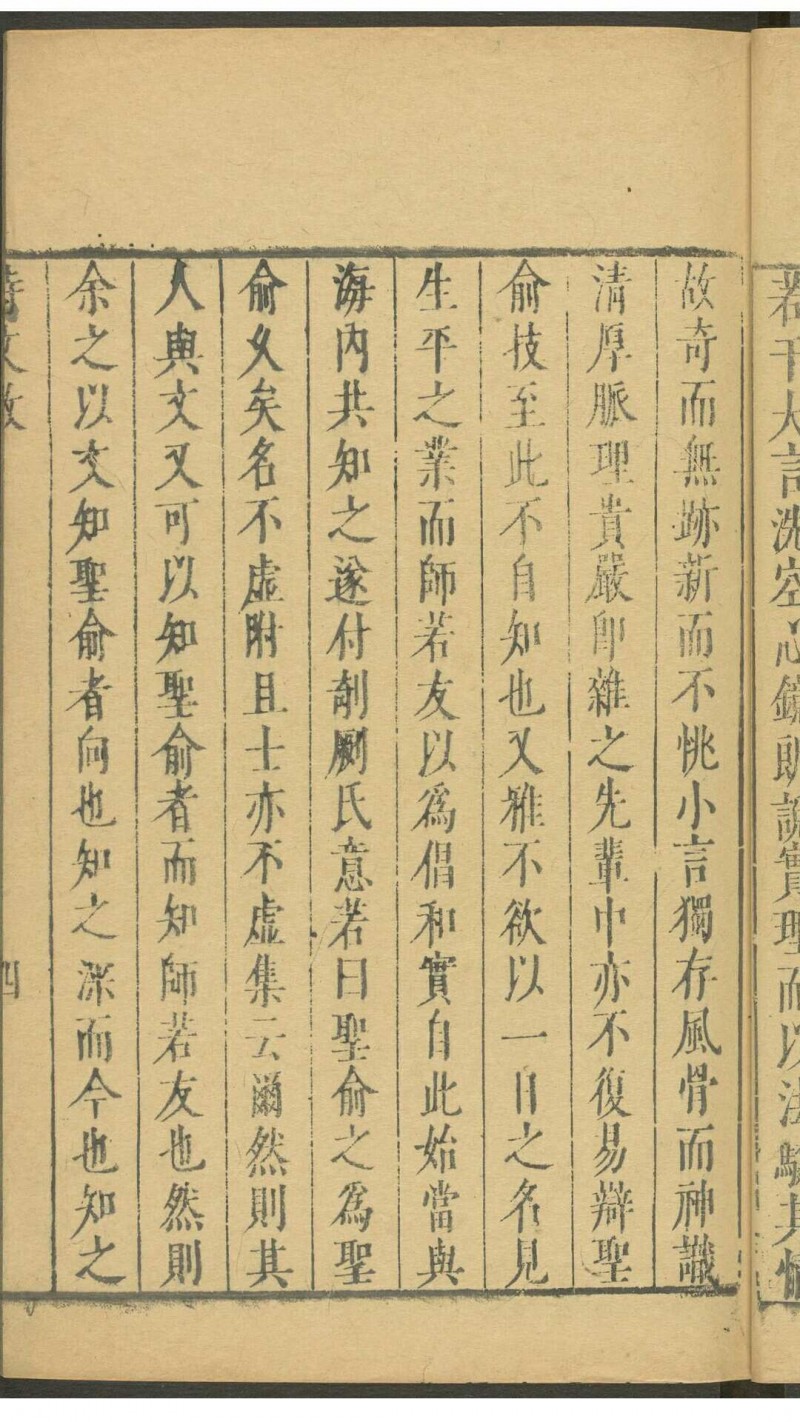 若干大言洗空心鏡眺諕實理而以法驗其
故奇而無跡新而不恌小言獨存風骨而神識
清厚脈理貴嚴卽雜之先輩中亦不復易辯聖
俞技至此不自知也又雅不欲以一日之名見
生平之業而師若友以爲倡和實自此始當與
海內共知之遂付剞劂氏意若曰聖俞之爲聖
俞久矣名不虛附且士亦不虛集云爾然則其
人與文又可以知聖俞者而知師若友也然則
余之以文知聖俞者向也知之深而今也知之
四